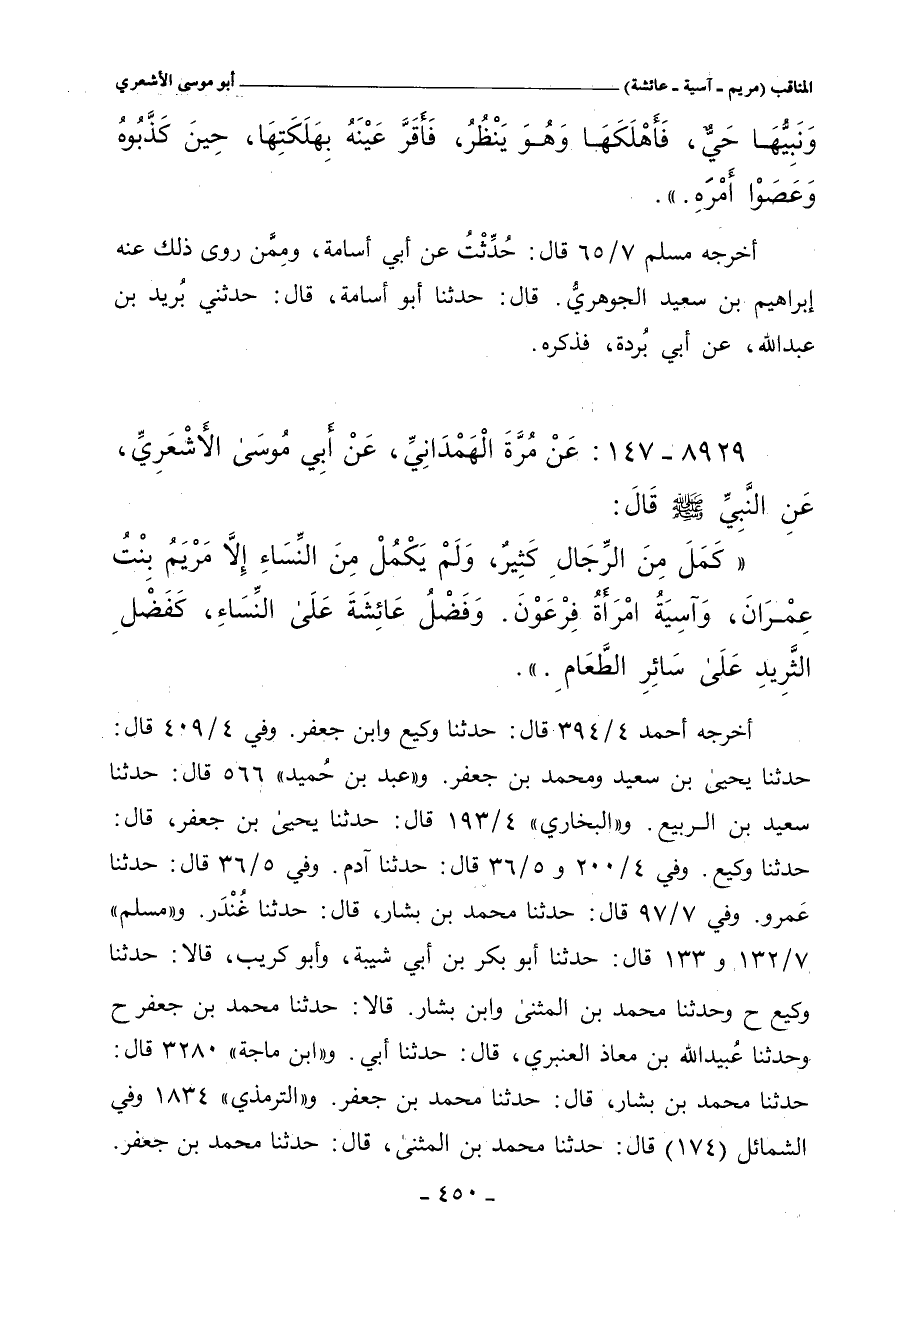 المناقب (مريم - آسية - عائشة) ــــــ أبو موسى الأشعري
وَنَبِيُّهَا حَيٌّ، فَأَهْلَكَهَا وَهُوَ يَنْظُرُ، فَأَقَرَّ عَيْنَهُ بِهَلَكَتِهَا، حِينَ كَذَّبُوهُ
وَعَصَوْا أَمْرَهِ.».
أخرجه مسلم ٦٥/٧ قال: حُدِّثْتُ عن أبي أسامة، وممَّن روى ذلك عنه
إبراهيم بن سعيد الجوهريُّ. قال: حدثنا أبو أسامة، قال: حدثني بُريد بن
عبدالله، عن أبي بُردة، فذكره.
٨٩٢٩ - ١٤٧: عَنْ مُرَّةَ الْهَمْدَانِيِّ، عَنْ أَبِي مُوسَىٰ الأَشْعَرِيِّ،
عَنِ النَّبِيِّ ﷺ قَالَ:
« كَمَلَ مِنَ الرِّجَالِ كَثِيرٌ، وَلَمْ يَكْمُلْ مِنَ النِّسَاءِ إِلَّا مَرْيَمُ بِنْتُ
عِمْرَانَ، وَآسِيَةُ امْرَأَةُ فِرْعَوْنَ. وَفَضْلُ عَائِشَةَ عَلَىٰ النِّسَاءِ، كَفَضْلِ
الثَّرِيدِ عَلَىٰ سَائِرِ الطَّعَامِ.».
أخرجه أحمد ٣٩٤/٤ قال: حدثنا وكيع وابن جعفر. وفي ٤٠٩/٤ قال:
حدثنا يحيىٰ بن سعيد ومحمد بن جعفر. و«عبد بن حُميد» ٥٦٦ قال: حدثنا
سعيد بن الربيع. و«البخاري» ١٩٣/٤ قال: حدثنا يحيىٰ بن جعفر، قال:
حدثنا وكيع. وفي ٢٠٠/٤ و ٣٦/٥ قال: حدثنا آدم. وفي ٣٦/٥ قال: حدثنا
عَمرو. وفي ٩٧/٧ قال: حدثنا محمد بن بشار، قال: حدثنا غُنْدَر. و«مسلم»
١٣٢/٧ و ١٣٣ قال: حدثنا أبو بكر بن أبي شيبة، وأبو كريب، قالا: حدثنا
وكيع ح وحدثنا محمد بن المثنىٰ وابن بشار. قالا: حدثنا محمد بن جعفر ح
وحدثنا عُبيدالله بن معاذ العنبري، قال: حدثنا أبي. و«ابن ماجة» ٣٢٨٠ قال:
حدثنا محمد بن بشار، قال: حدثنا محمد بن جعفر. و«الترمذي» ١٨٣٤ وفي
الشمائل (١٧٤) قال: حدثنا محمد بن المثنىٰ، قال: حدثنا محمد بن جعفر.
- ٤٥٠ -